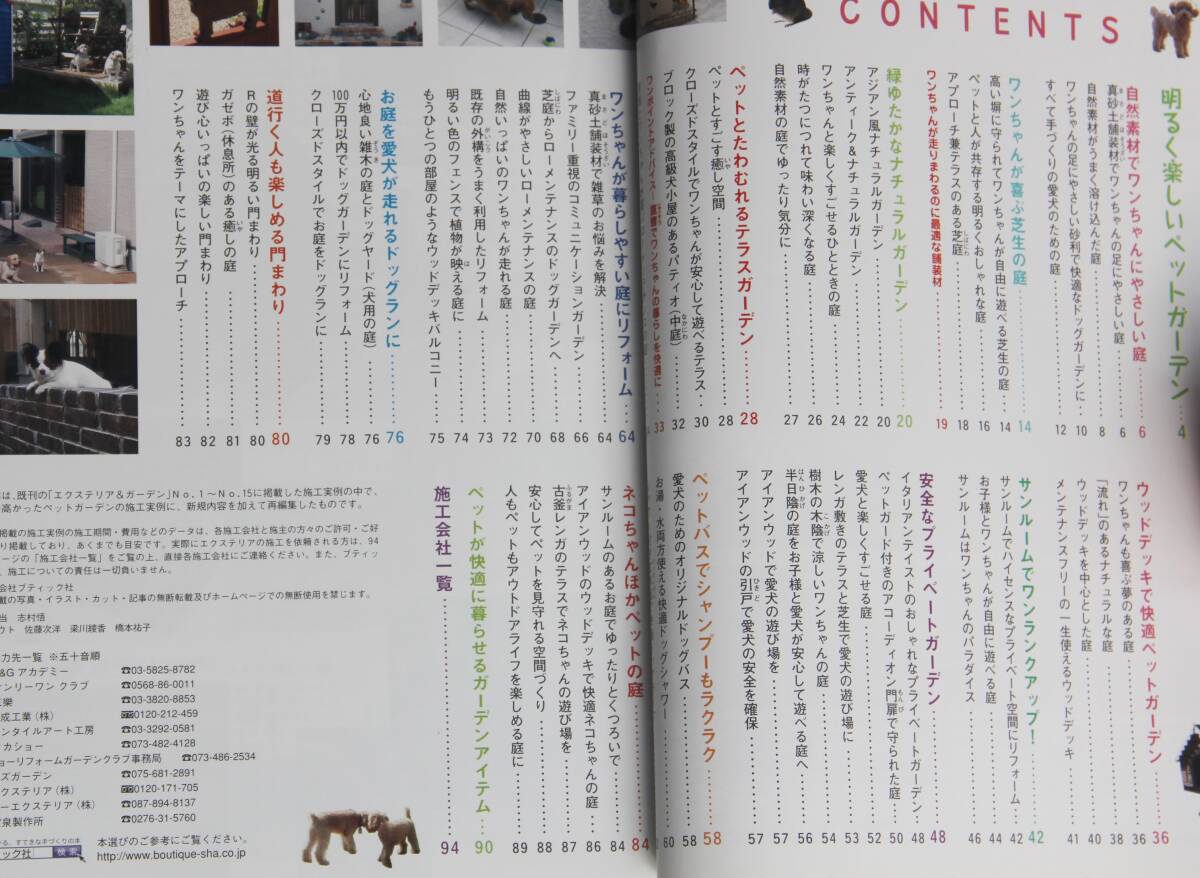 CONTENTS
明るく楽しいペットガーデン……4
自然素材でワンちゃんにやさしい庭……6
真砂土舗装材でワンちゃんの足にやさしい庭……6
自然素材がうまく溶け込んだ庭……8
ワンちゃんの足にやさしい砂利で快適なドッグガーデンに……10
すべて手づくりの愛犬のための庭……12
ワンちゃんが喜ぶ芝生の庭……14
高い塀に守られてワンちゃんが自由に遊べる芝生の庭……14
ペットと人が共存する明るくおしゃれな庭……16
アプローチ兼テラスのある芝庭……18
ワンちゃんが走りまわるのに最適な舗装材……19
緑ゆたかなナチュラルガーデン……20
アジアン風ナチュラルガーデン……20
アンティーク&ナチュラルガーデン……22
ワンちゃんと楽しくすごせるひとときの庭……24
時がたつにつれて味わい深くなる庭……26
自然素材の庭でゆったり気分に……27
ペットとたわむれるテラスガーデン……28
ペットとすごす癒し空間……28
クローズドスタイルでワンちゃんが安心して遊べるテラス……30
ブロック製の高級犬小屋のあるパティオ(中庭)……32
33
ウッドデッキで快適ペットガーデン……36
ワンちゃんも喜ぶ夢のある庭……36
「流れ」のあるナチュラルな庭……38
ウッドデッキを中心とした庭……40
メンテナンスフリーの一生使えるウッドデッキ……41
サンルームでワンランクアップ!……42
サンルームでハイセンスなプライベート空間にリフォーム……42
お子様とワンちゃんが自由に遊べる庭……44
サンルームはワンちゃんのパラダイス……46
安全なプライベートガーデン……48
イタリアンテイストのおしゃれなプライベートガーデン……48
ペットガード付きのアコーディオン門扉で守られた庭……50
愛犬と楽しくすごせる庭……52
レンガ敷きのテラスと芝生で愛犬の遊び場に……53
樹木の木陰で涼しいワンちゃんの庭……54
半日陰の庭をお子様と愛犬が安心して遊べる庭へ……56
アイアンウッドで愛犬の遊び場を……57
アイアンウッドの引戸で愛犬の安全を確保……57
ペットバスでシャンプーもラクラク……58
愛犬のためのオリジナルドッグバス……58
お湯・水両方使える快適ドッグシャワー……60
ワンちゃんが暮らしやすい庭にリフォーム……64
真砂土舗装材で雑草のお悩みを解決……64
ファミリー重視のコミュニケーションガーデン……66
芝庭からローメンテナンスのドッグガーデンへ……68
曲線がやさしいローメンテナンスの庭……70
自然いっぱいのワンちゃんが走れる庭……72
既存の外構をうまく利用したリフォーム……73
明るい色のフェンスで植物が映える庭に……74
もうひとつの部屋のようなウッドデッキバルコニー……75
お庭を愛犬が走れるドッグランに……76
心地良い雑木の庭とドッグヤード(犬用の庭)……76
100万円以内でドッグガーデンにリフォーム……78
クローズドスタイルでお庭をドッグランに……79
道行く人も楽しめる門まわり……80
Rの壁が光る明るい門まわり……80
ガゼボ(休息所)のある癒しの庭……81
遊び心いっぱいの楽しい門まわり……82
ワンちゃんをテーマにしたアプローチ……83
ネコちゃんほかペットの庭……84
サンルームのあるお庭でゆったりとくつろいで……84
アイアンウッドのウッドデッキで快適ネコちゃんの庭……86
古釜レンガのテラスでネコちゃんの遊び場を……87
安心してペットを見守れる空間づくり……88
人もペットもアウトドアライフを楽しめる庭に……89
ペットが快適に暮らせるガーデンアイテム……90
施工会社一覧……94
は、既刊の「エクステリア&ガーデン」No.1〜No.15に掲載した施工実例の中で、
高かったペットガーデンの施工実例に、新規内容を加えて再編集したものです。
掲載の施工実例の施工期間・費用などのデータは、各施工会社と施主の方々のご許可・ご好
り掲載しており、あくまでも目安です。実際にエクステリアの施工を依頼される方は、94
ージの「施工会社一覧」をご覧の上、直接各施工会社にご連絡ください。また、ブティッ
、施工についての責任は一切負いません。
会社ブティック社
載の写真・イラスト・カット・記事の無断転載及びホームページでの無断使用を禁じます。
当 志村悟
ウト 佐藤次洋 梁川綾香 橋本祐子
力先一覧 ※五十音順
&G アカデミー ☎03-5825-8782
ンリーワン クラブ ☎0568-86-0011
樂 ☎03-3820-8853
成工業(株) 0120-212-459
ンタイルアート工房 ☎03-3292-0581
カショー ☎073-482-4128
ョーリフォームガーデンクラブ事務局 ☎073-486-2534
ズガーデン ☎075-681-2891
クステリア(株) 0120-171-705
ーエクステリア(株) ☎087-894-8137
泉製作所 ☎0276-31-5760
る、すてきな手づくりの本
ィック社 検索
本選びのご参考にご覧ください。
http://www.boutique-sha.co.jp